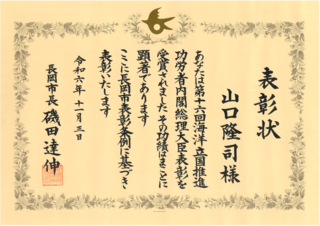 表彰状
山口隆司様
あなたは第十六回海洋立国推進
功労者内閣総理大臣表彰を
受賞されました その功績はまことに
顕著であります
ここに長岡市表彰条例に基づき
表彰いたします
令和六年十一月三日
長岡市長 磯田達伸